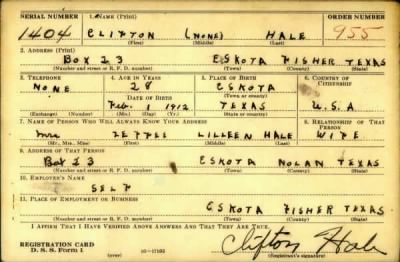 SERIAL NUMBER 1. NAME (Print) ORDER NUMBER
1404 CLIFTON (NONE) HALE 955
(First) (Middle) (Last)
2. ADDRESS (Print)
BOX 23 ESKOTA FISHER TEXAS
(Number and street or R. F. D. number) (Town) (County) (State)
3. TELEPHONE 4. AGE IN YEARS 5. PLACE OF BIRTH 6. COUNTRY OF CITIZENSHIP
NONE 28 ESKOTA
DATE OF BIRTH (Town or county)
Feb. 1 1912 TEXAS U.S.A
(Exchange) (Number) (Mo.) (Day) (Yr.) (State or country)
7. NAME OF PERSON WHO WILL ALWAYS KNOW YOUR ADDRESS 8. RELATIONSHIP OF THAT PERSON
Mrs LILLEEN HALE WIFE
(Mr., Mrs., Miss) (First) (Middle) (Last)
9. ADDRESS OF THAT PERSON
BOX 23 ESKOTA NOLAN TEXAS
(Number and street or R. F. D. number) (Town) (County) (State)
10. EMPLOYER'S NAME
SELF
11. PLACE OF EMPLOYMENT OR BUSINESS
ESKOTA FISHER TEXAS
(Number and street or R. F. D. number) (Town) (County) (State)
I AFFIRM THAT I HAVE VERIFIED ABOVE ANSWERS AND THAT THEY ARE TRUE.
REGISTRATION CARD
D. S. S. Form 1 Clifton Hale
(Registrant's signature)